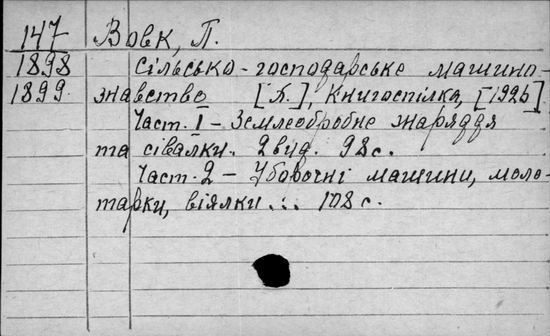 147 Вовк, П.
1898 Сільсько-господарське машино-
1899 знавство [К.], Книгоспілка, [1926]
Част. I – Землеобробне знаряддя
та сівалки. 2 вид. 98 с.
Част. 2 – Убовочні машини, моло-
тарки, віялки... 108 с.